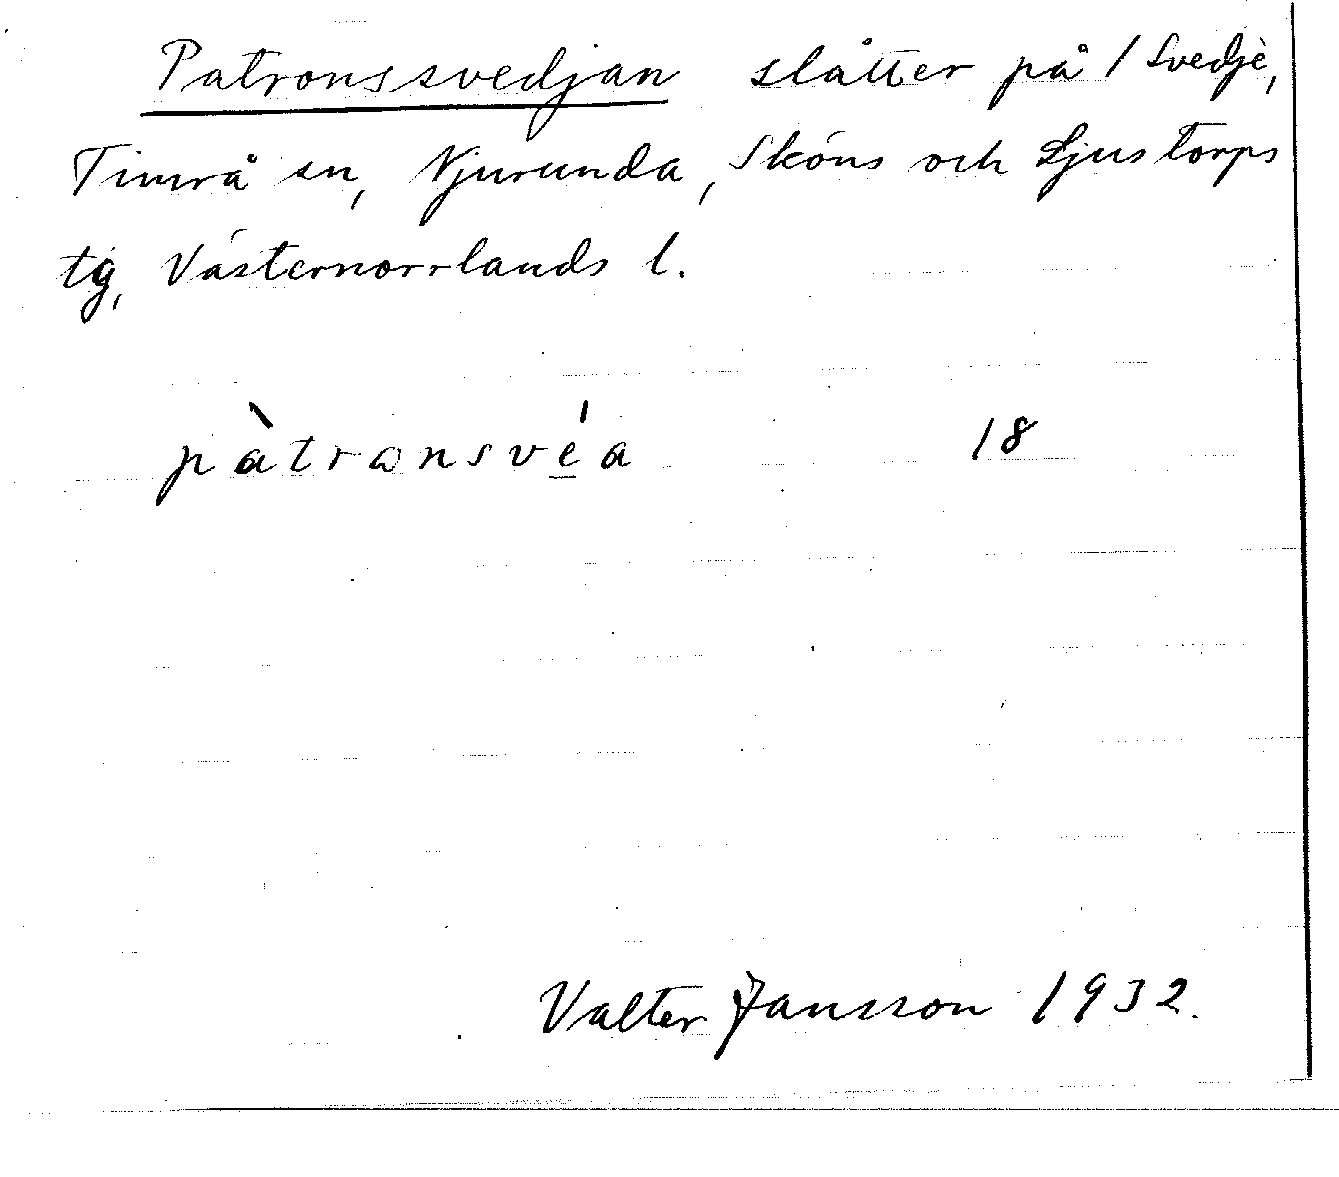 Patronssvedjan slåtter på 1 Svedje,
Timrå sn, Njurunda, Sköns och Ljustorps
tg, Västernorrlands l.
pàtransvéa 18
Valter Jansson 1932.